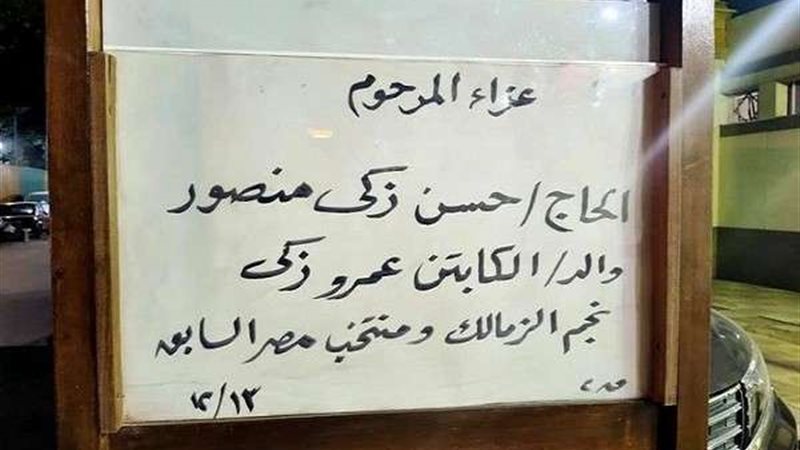 عزاء المرحوم
الحاج / حسن زكى منصور
والد / الكابتن عمرو زكى
نجم الزمالك ومنتخب مصر السابق
١٣ / ١٢